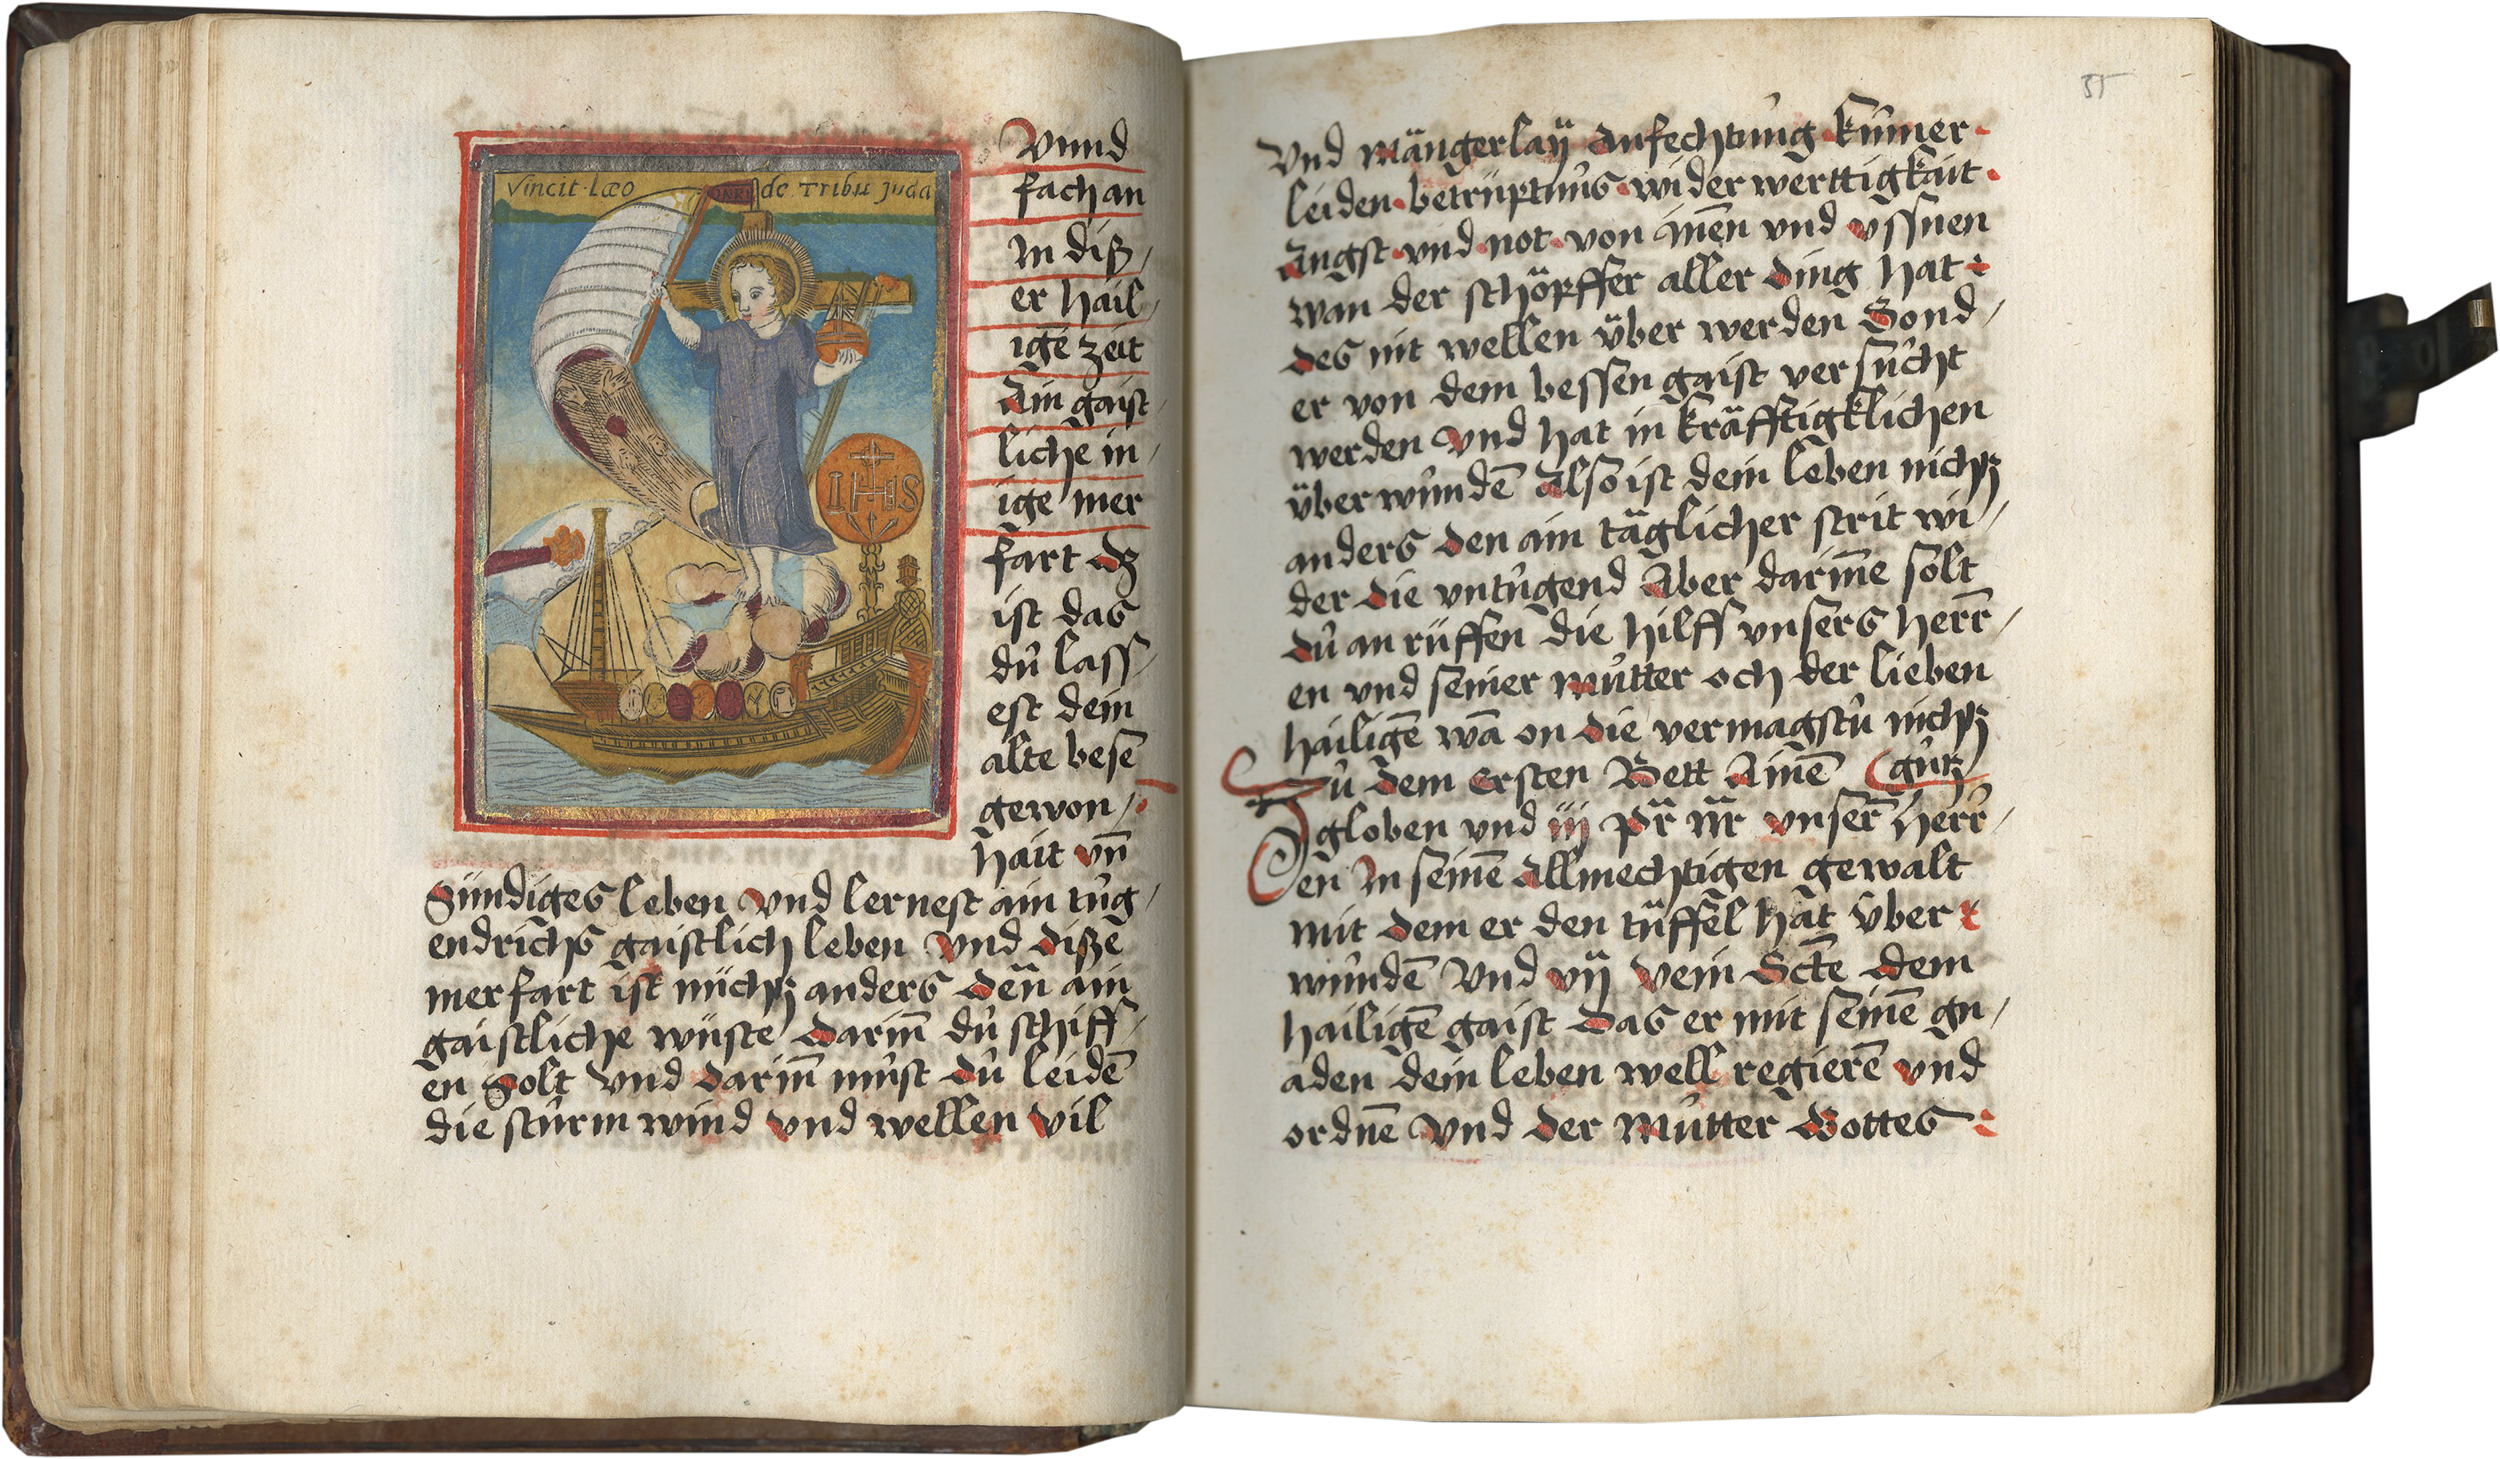 Vincit Læo de Tribu Juda
IHS
Vnnd
fach an
In diß/
er hail/
ige zeit
Ain gaist/
liche in/
ige mer
fart dz
ist das
dů lass/
est dein
alte besē
gewon/
hait vn̄
Sündiges leben vnd lernest ain tůg/
endrichs gaistlich leben vnd dißē
merfart ist nüchz anders deñ ain
gaistliche wüste darin̄ dů schiff/
en Solt vnd darin̄ můst dů leidē
die stůrm wind vnd wellen vil
35
Vnd mängerlaÿ Anfechtůng kůmer
leiden betrüptnůs wider werttigkait
Angst vnd not von in̄en vnd vssnen
wan der schöpffer aller ding hat
des nit wellen über werden Sond/
er von dem bessen gaist versůcht
werden vnd hat in kräfftigklichen
überwůndē Also ist dein leben nichz
anders den ain täglicher strit wi/
der die vntůgend Aber darin̄e solt
dů an rüffen die hilff vnsers herr̄/
en vnd seiner můtter och der lieben
hailigē wā on die vermagstů nichz
Zů dem ersten Bett Ain̄ē gůtz
globen vnd iij pr̄ nr̄ vnser̄ herr̄/
en In seinē Allmechtigen gewalt
mit dem er den tüffel hat über
wůndē Vnd vij Vein Sctē dem
hailigē gaist das er mit seinē gn/
aden dein leben well regierē vnd
ordnē vnd der Můtter Gottes